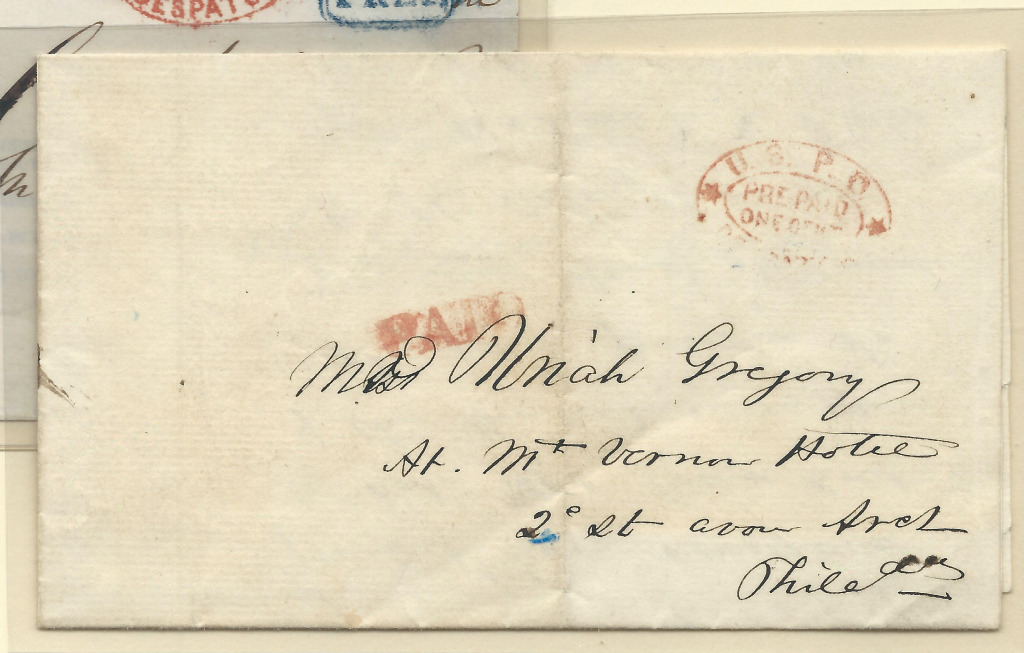 U. S. P. O
PRE PAID
ONE CENT
PAID
Uriah Gregory
At. Mt Vernon Hotel
2d St above Arch
Philada